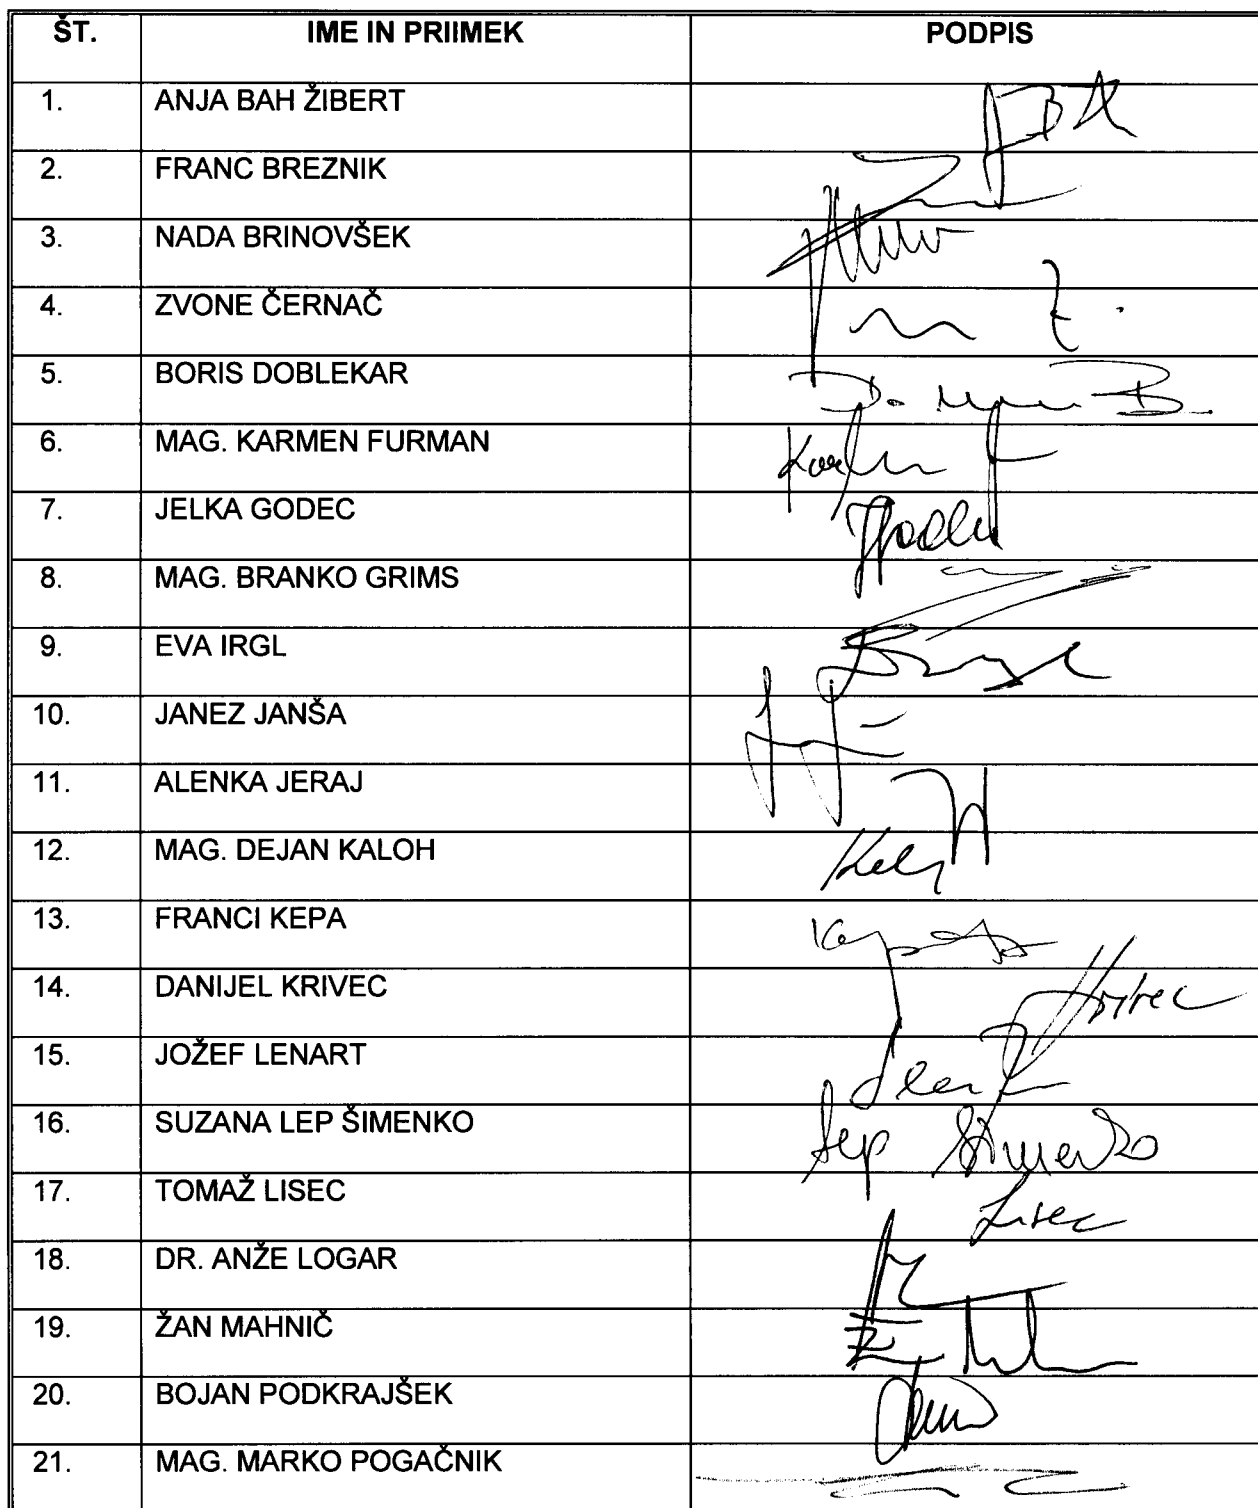 ŠT. IME IN PRIIMEK PODPIS
1. ANJA BAH ŽIBERT
2. FRANC BREZNIK
3. NADA BRINOVŠEK
4. ZVONE ČERNAČ
5. BORIS DOBLEKAR
6. MAG. KARMEN FURMAN
7. JELKA GODEC
8. MAG. BRANKO GRIMS
9. EVA IRGL
10. JANEZ JANŠA
11. ALENKA JERAJ
12. MAG. DEJAN KALOH
13. FRANCI KEPA
14. DANIJEL KRIVEC
15. JOŽEF LENART
16. SUZANA LEP ŠIMENKO Lep Šimenko
17. TOMAŽ LISEC Lisec
18. DR. ANŽE LOGAR
19. ŽAN MAHNIČ
20. BOJAN PODKRAJŠEK
21. MAG. MARKO POGAČNIK